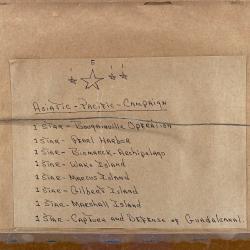 5
1 1 1
Asiatic-Pacific-Campaign
1 Star - Bougainville Operation
1 Star - Pearl Harbor
1 Star - Bismarck-Archipelago
1 Star - Wake Island
1 Star - Marcus Island
1 Star - Gilbert Island
1 Star - Marshall Island
1 Star - Capture and Defense of Guadalcanal.